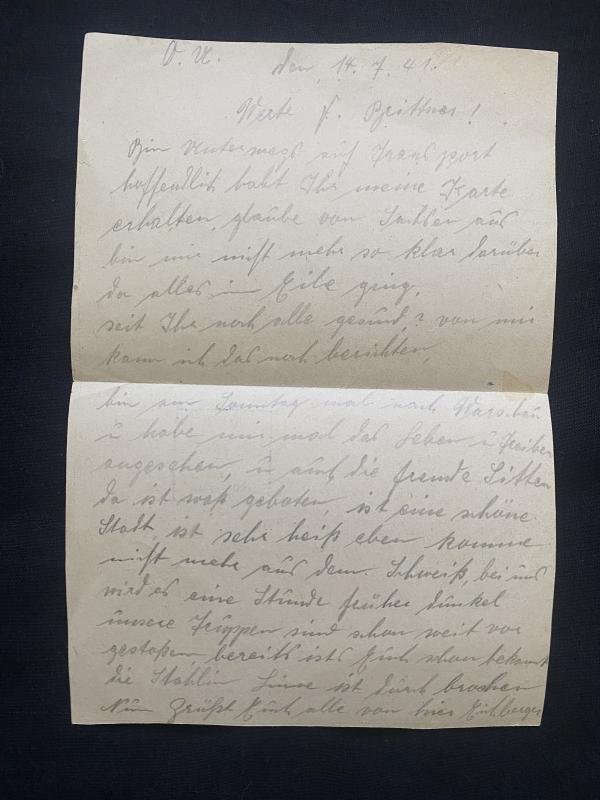 O. U. den 14. 7. 41.
Werte F. Brittner!
Bin unterwegs auf Transport
hoffentlich habt Ihr meine Karte
erhalten, glaube von Sachsen aus
bin mir nicht mehr so klar darüber
da alles in Eile ging.
seit Ihr noch alle gesund,? von mir
kann ich das noch berichten,
bin am Sonntag mal nach Warschau
u habe mir mal das Leben u Treiben
angesehen, u auch die fremde Sitten
da ist waß geboten, ist eine schöne
Stadt, ist sehr heiß eben komme
nicht mehr aus dem Schweiß, bei uns
wird es eine Stunde früher dunkel
unsere Truppen sind schon weit vor
gestoßen bereits ists Euch schon bekannt
die Stahlin Linie ist durch brochen
Nun Grüßt Euch alle von hier